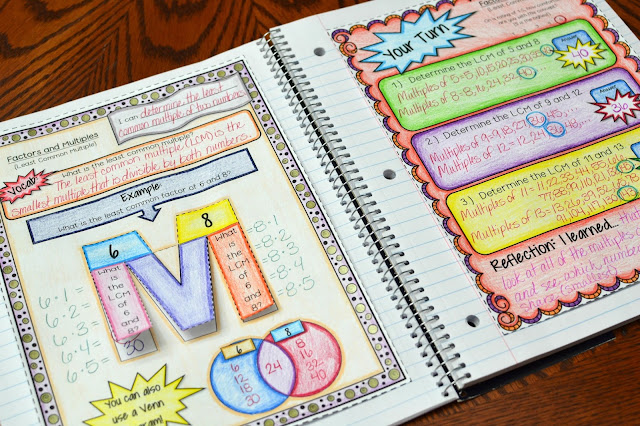 I can determine the least
common multiple of two numbers
Factors and Multiples
(Least Common Multiple)
Vocab
What is the least common multiple?
The least common multiple (LCM) is the
smallest multiple that is divisible by both numbers.
Example
What is the least common factor of 6 and 8?
6
8
What
is
the
LCM
of
6
and
8?
What
is
the
LCM
of
6
and
8?
6·1=
6·2=
6·3=
6·4=
6·5=
30
=8·1
=8·2
=8·3
=8·4
=8·5
6
8
6
12
18
30
24
8
16
32
40
You can also
use a Venn
Your Turn
1.) Determine the LCM of 5 and 8
Multiples of 5=5,10,15,20,25,30,35,40
Multiples of 8=8,16,24,32,40
Answer
40
2.) Determine the LCM of 9 and 12
Multiples of 9=9,18,27,36,45,...
Multiples of 12=12,24,36,48,...
Answer
36
3.) Determine the LCM of 11 and 13
Multiples of 11=11,22,33
Multiples of 13=
Reflection: I learned...
look at all of the multiples
and see which number